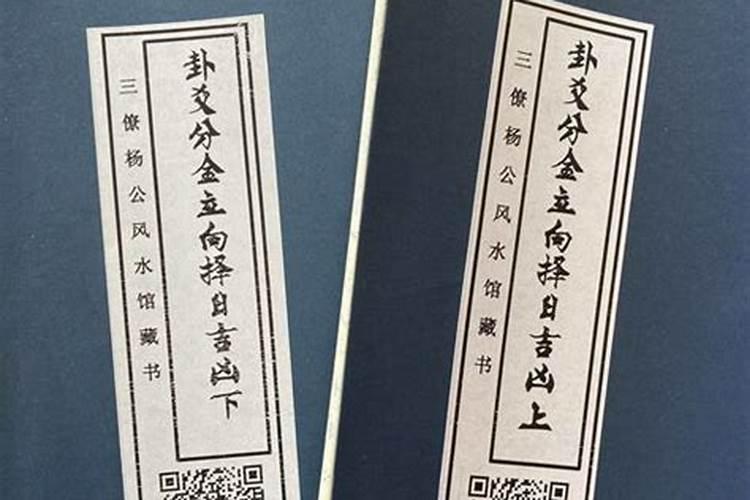 卦爻分金立向择日吉凶下
三僚杨公风水馆藏书
卦爻分金立向择日吉凶上
三僚杨公风水馆藏书